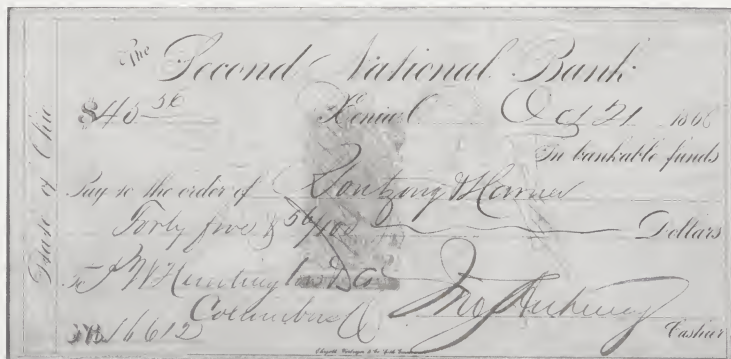 State of Ohio
The Second National Bank
$45 56 Xenia O Oct 21 1866
In bankable funds
Pay to the order of & Horner
Forty five & 56/100 Dollars
To P W Huntington & Co
Columbus O Jno
No. 16612 Cashier